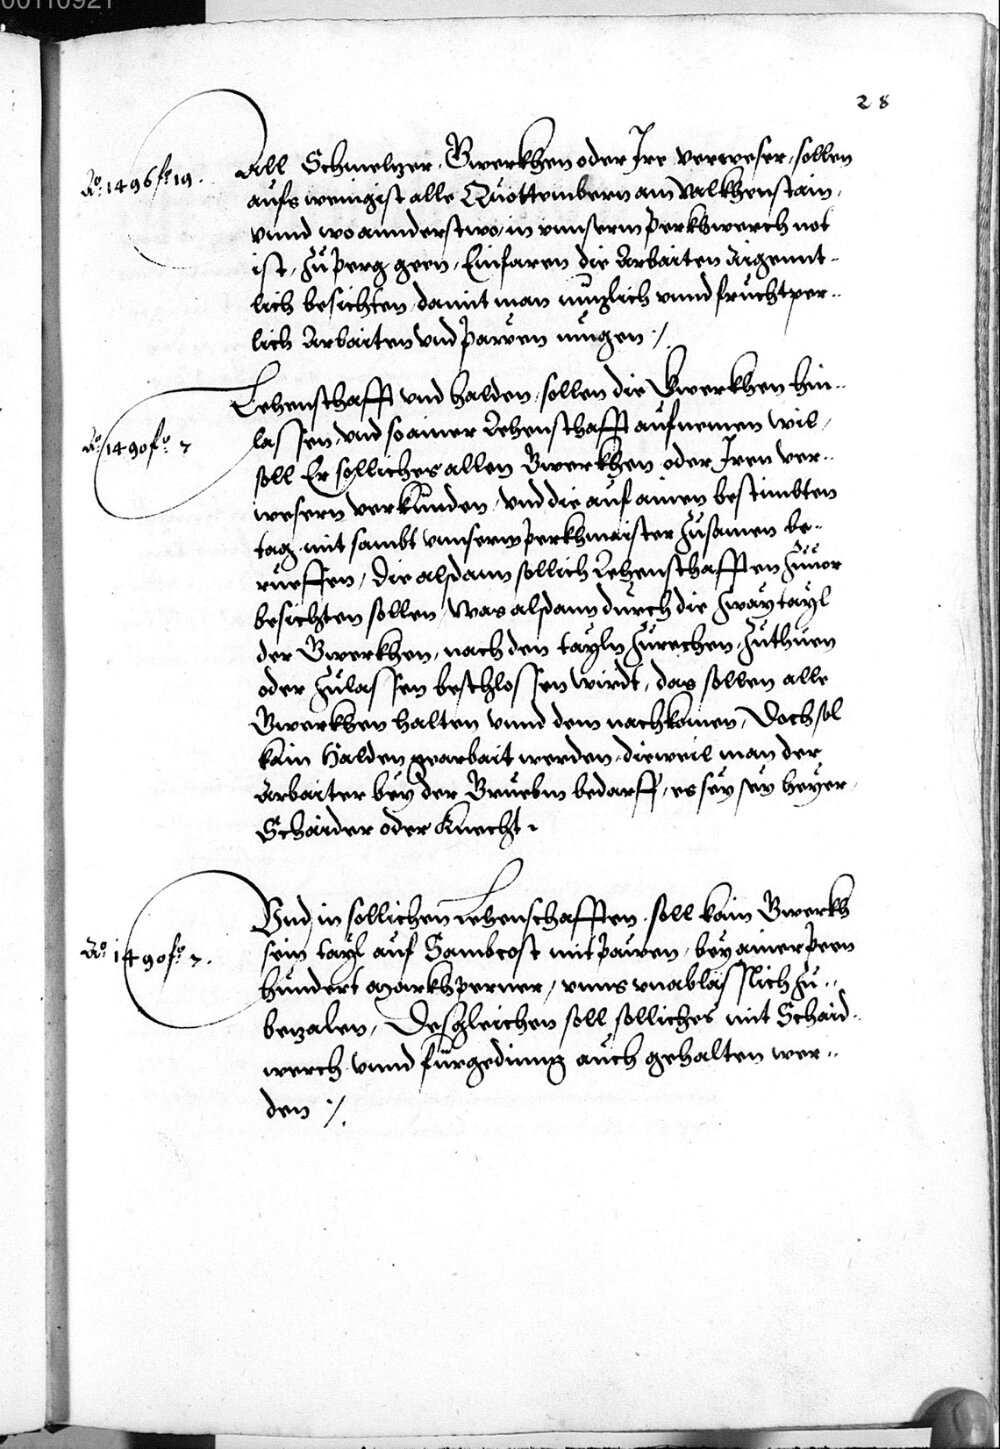 00110921
28
Ao. 1496 fo. 19.
All Schmeltzer, Gwerkhen oder Ire verweser, sollen
aufs wenigist alle Quottembern am Valkhenstain,
vnnd wo annderstwo, in vnnserm Perkhwerch not
ist, zu Perg geen, Einfaren die Arbaiten Aigennt-
lich besichten, damit man nutzlich vnnd fruchtper-
lich Arbaiten vnd Pawen mügen ./.
Ao. 1490 fo. 7
Lehenschafft vnd halden, sollen die Gwerkhen hin-
lassen vnd so ainer Lehenschafft aufnemen wil,
soll Er solliches allen Gwerkhen oder Iren ver-
wesern verkünden, vnd die auf ainen bestimbten
tag, mit sambt vnnserm Perkhmaister zusamen be-
rueffen, die alsdann sollich Lehenschafften zuuor
besichten sollen, Was alsdann durch die zway tayl
der Gwerkhen, nach den tayln zurechen, zuthuen
oder zulassen beschlossen wirdt, das sollen alle
Gwerkhen halten vnnd dem nachkomen, Doch sol
kain Halden gearbait werden, dieweil man der
Arbaiter bey der Gruebm bedarff, es sey sey heyer,
Schaider oder Knecht.
Ao. 1490 fo. 7.
Vnd in sollichen Lehenschafften, soll kain Gwerkh
sein tayl auf Sambcost mitpawen, bey ainer Peen
hundert markh perner, vnns vnablässlich zu-
betzalen, Desgleichen soll solliches mit Schaid-
werch vnnd fürgeding auch gehalten wer-
den ./.